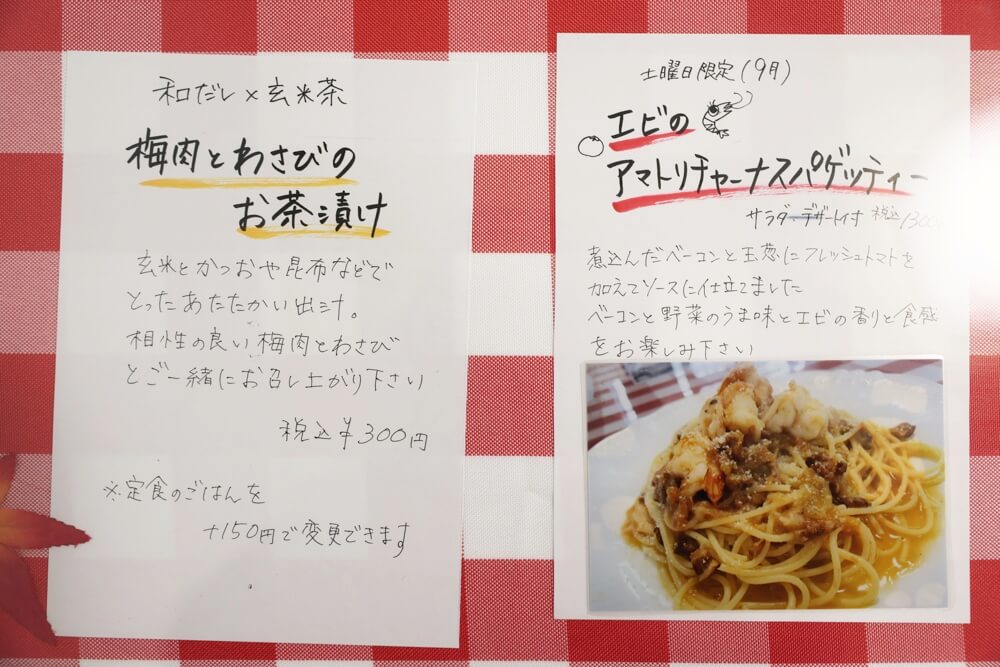 和だし×玄米茶
梅肉とわさびの
お茶漬け
玄米とかつおや昆布などで
とったあたたかい出汁。
相性の良い梅肉とわさび
とご一緒にお召し上がり下さい
税込¥300円
※定食のごはんを
+150円で変更できます
土曜日限定(9月)
エビの
アマトリチャーナスパゲッティー
サラダ・デザート付 税込1300
煮込んだベーコンと玉葱にフレッシュトマトを
加えてソースに仕立てました
ベーコンと野菜のうま味とエビの香りと食感
をお楽しみ下さい